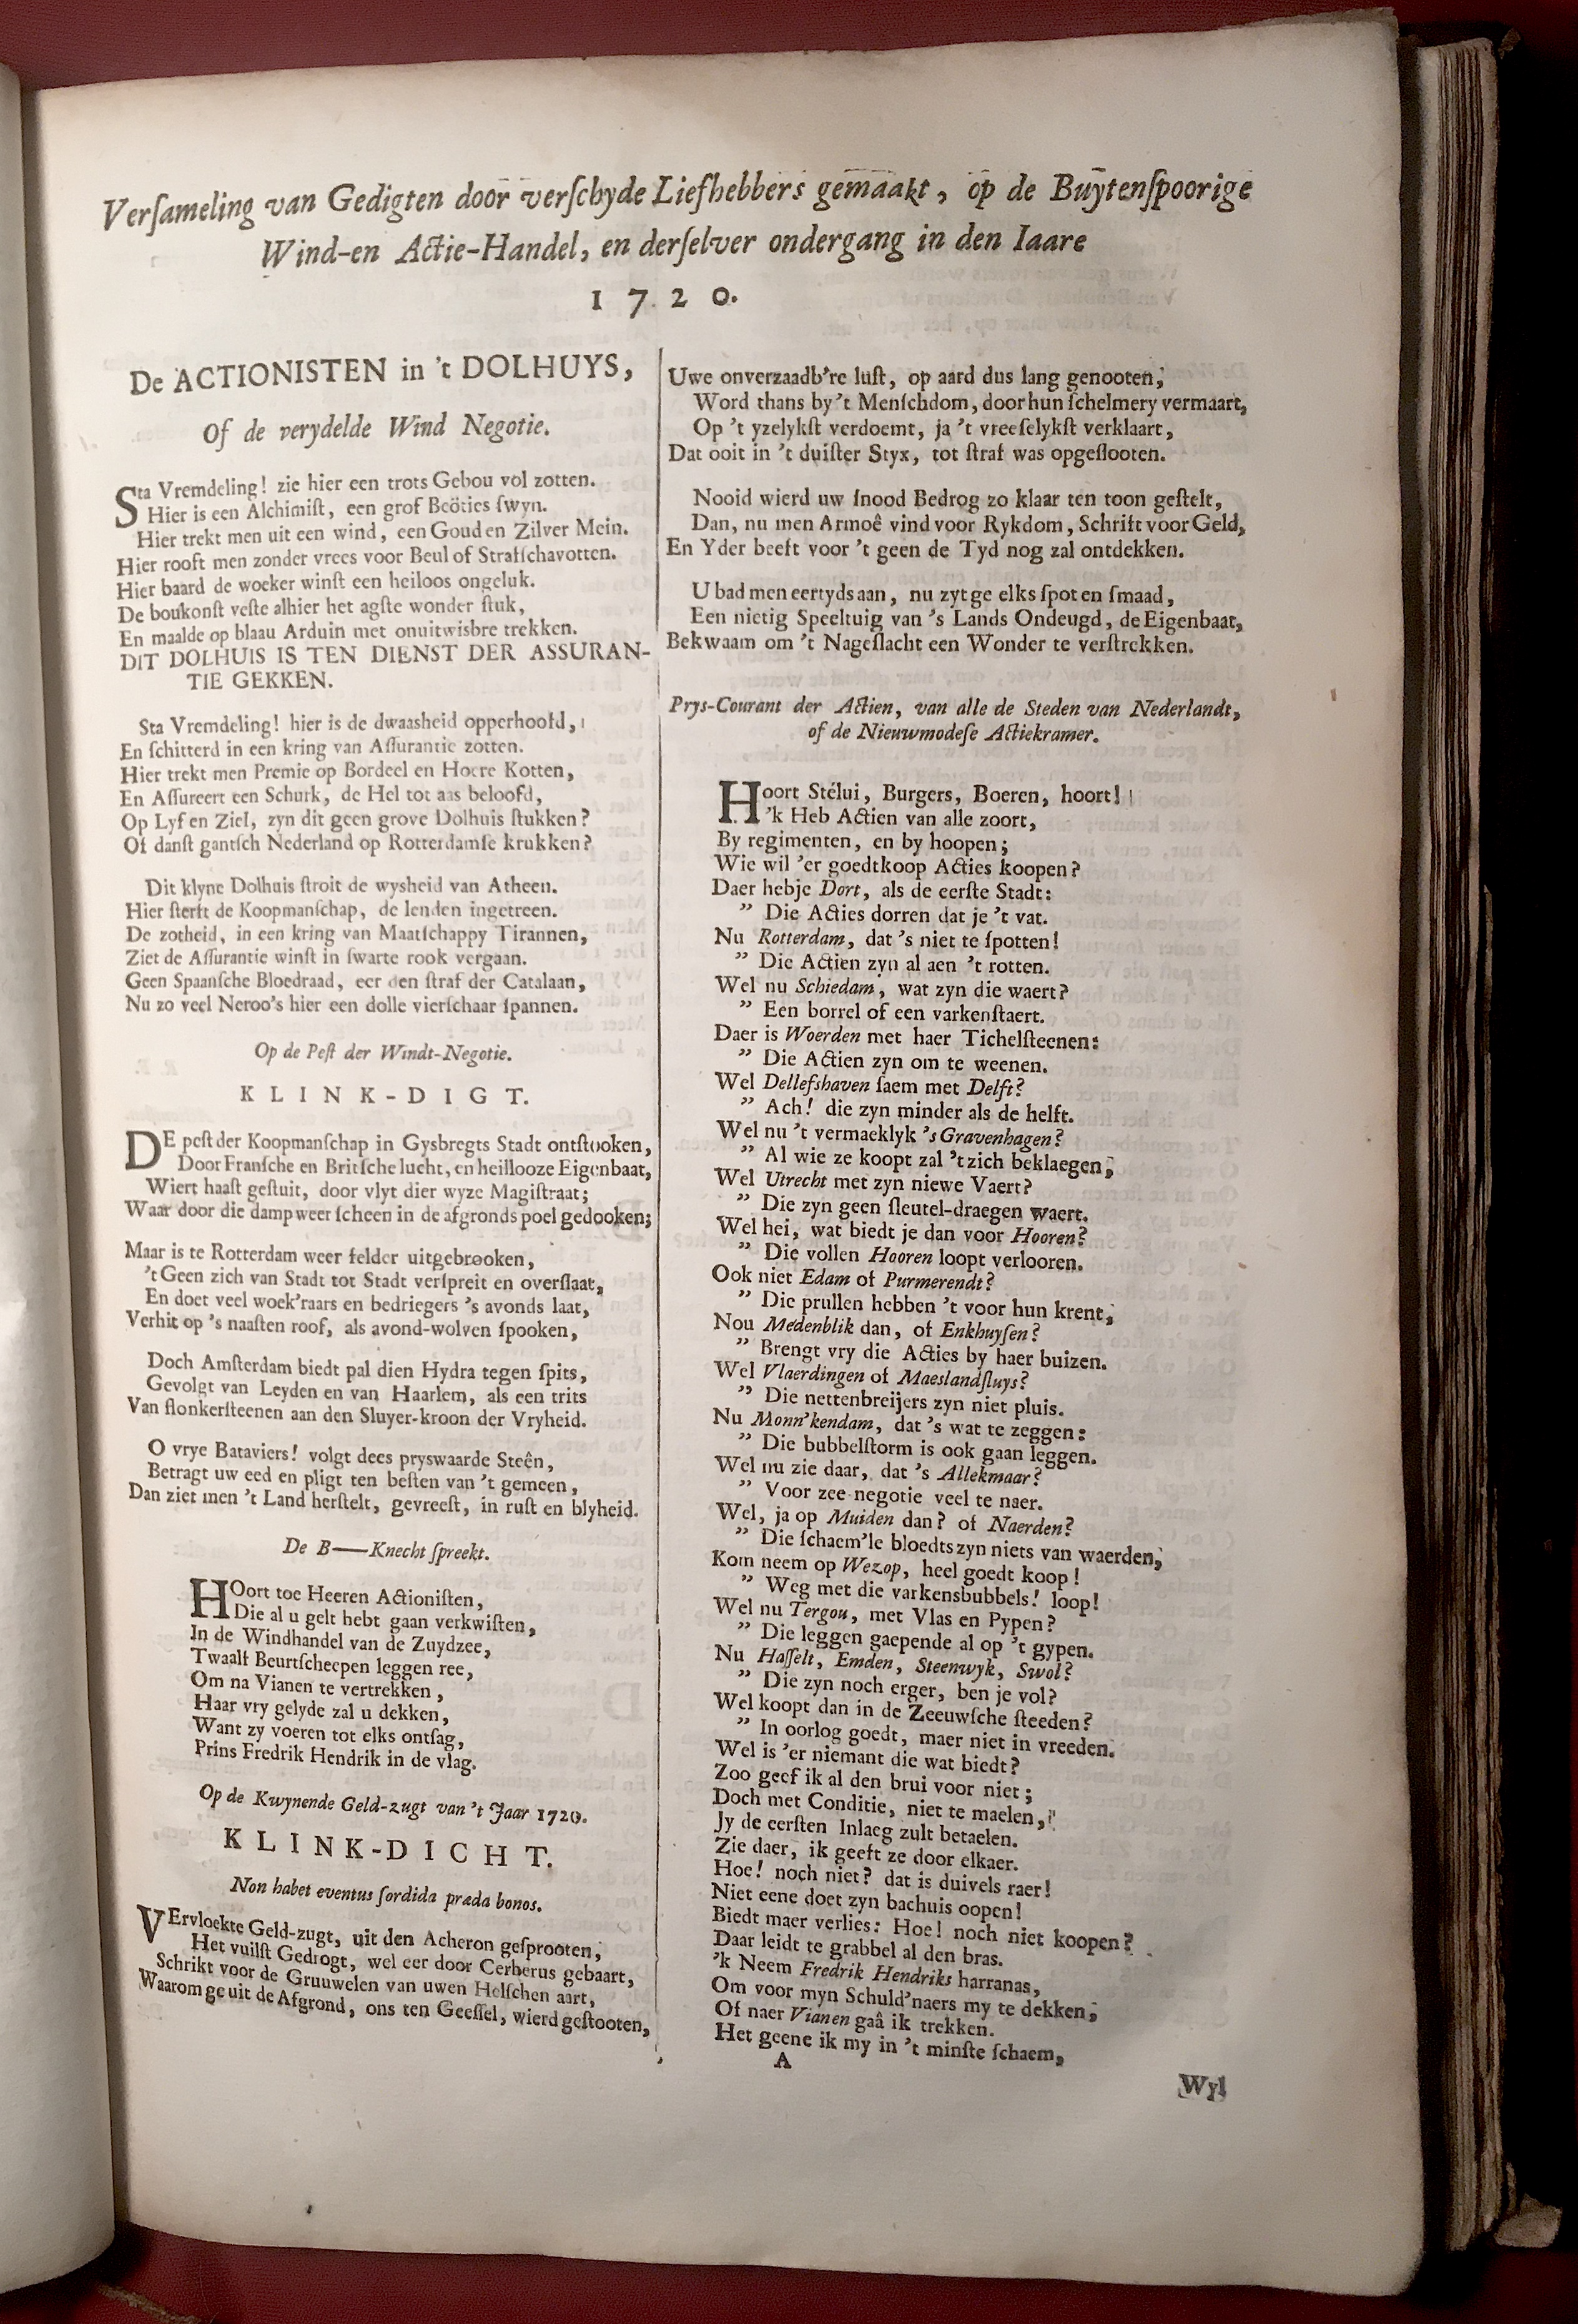 Verſameling van Gedigten door verſchyde Liefhebbers gemaakt, op de Buytenſpoorige
Wind-en Actie-Handel, en derſelver ondergang in den Iaare
1720.
De ACTIONISTEN in 't DOLHUYS,
Of de verydelde Wind Negotie.
Sta Vremdeling! zie hier een trots Gebou vol zotten.
Hier is een Alchimiſt, een grof Beöties ſwyn.
Hier trekt men uit een wind, een Goud en Zilver Mein.
Hier rooft men zonder vrees voor Beul of Strafſchavotten.
Hier baard de woeker winſt een heiloos ongeluk.
De boukonſt veſte alhier het agſte wonder ſtuk,
En maalde op blaau Arduin met onuitwisbre trekken.
DIT DOLHUIS IS TEN DIENST DER ASSURAN-
TIE GEKKEN.
Sta Vremdeling! hier is de dwaasheid opperhoofd,
En ſchitterd in een kring van Aſſurantie zotten.
Hier trekt men Premie op Bordeel en Hoere Kotten,
En Aſſureert een Schurk, de Hel tot aas beloofd,
Op Lyf en Ziel, zyn dit geen grove Dolhuis ſtukken?
Of danſt gantſch Nederland op Rotterdamſe krukken?
Dit klyne Dolhuis ſtroit de wysheid van Atheen.
Hier ſterft de Koopmanſchap, de lenden ingetreen.
De zotheid, in een kring van Maatſchappy Tirannen,
Ziet de Aſſurantie winſt in ſwarte rook vergaan.
Geen Spaanſche Bloedraad, eer den ſtraf der Catalaan,
Nu zo veel Neroo's hier een dolle vierſchaar ſpannen.
Op de Peſt der Windt-Negotie.
KLINK-DIGT.
DE peſt der Koopmanſchap in Gysbregts Stadt ontſtooken,
Door Franſche en Britſche lucht, en heillooze Eigenbaat,
Wiert haaſt geſtuit, door vlyt dier wyze Magiſtraat;
Waar door die damp weer ſcheen in de afgronds poel gedooken;
Maar is te Rotterdam weer felder uitgebrooken,
't Geen zich van Stadt tot Stadt verſpreit en overſlaat,
En doet veel woek'raars en bedriegers 's avonds laat,
Verhit op 's naaſten roof, als avond-wolven ſpooken,
Doch Amſterdam biedt pal dien Hydra tegen ſpits,
Gevolgt van Leyden en van Haarlem, als een trits
Van flonkerſteenen aan den Sluyer-kroon der Vryheid.
O vrye Bataviers! volgt dees pryswaarde Steên,
Betragt uw eed en pligt ten beſten van 't gemeen,
Dan ziet men 't Land herſtelt, gevreeſt, in ruſt en blyheid.
De B——Knecht ſpreekt.
HOort toe Heeren Actioniſten,
Die al u gelt hebt gaan verkwiſten,
In de Windhandel van de Zuydzee,
Twaalf Beurtſcheepen leggen ree,
Om na Vianen te vertrekken,
Haar vry gelyde zal u dekken,
Want zy voeren tot elks ontſag,
Prins Fredrik Hendrik in de vlag.
Op de Kwynende Geld-zugt van 't Jaar 1720.
KLINK-DICHT.
Non habet eventus ſordida præda bonos.
VErvloekte Geld-zugt, uit den Acheron geſprooten,
Het vuilſt Gedrogt, wel eer door Cerberus gebaart,
Schrikt voor de Gruuwelen van uwen Helſchen aart,
Waarom ge uit de Afgrond, ons ten Geeſſel, wierd geſtooten,
Uwe onverzaadb're luſt, op aard dus lang genooten,
Word thans by 't Menſchdom, door hun ſchelmery vermaart,
Op 't yzelykſt verdoemt, ja 't vreeſelykſt verklaart,
Dat ooit in 't duiſter Styx, tot ſtraf was opgeſlooten.
Nooid wierd uw ſnood Bedrog zo klaar ten toon geſtelt,
Dan, nu men Armoê vind voor Rykdom, Schrift voor Geld,
En Yder beeft voor 't geen de Tyd nog zal ontdekken.
U bad men eertyds aan, nu zyt ge elks ſpot en ſmaad,
Een nietig Speeltuig van 's Lands Ondeugd, de Eigenbaat,
Bekwaam om 't Nageſlacht een Wonder te verſtrekken.
Prys-Courant der Actien, van alle de Steden van Nederlandt,
of de Nieuwmodeſe Actiekramer.
Hoort Stélui, Burgers, Boeren, hoort!
'k Heb Actien van alle zoort,
By regimenten, en by hoopen;
Wie wil 'er goedtkoop Acties koopen?
Daer hebje Dort, als de eerſte Stadt:
" Die Acties dorren dat je 't vat.
Nu Rotterdam, dat 's niet te ſpotten!
" Die Actien zyn al aen 't rotten.
Wel nu Schiedam, wat zyn die waert?
" Een borrel of een varkenſtaert.
Daer is Woerden met haer Tichelſteenen:
" Die Actien zyn om te weenen.
Wel Dellefshaven ſaem met Delft?
" Ach! die zyn minder als de helft.
Wel nu 't vermaeklyk 's Gravenhagen?
" Al wie ze koopt zal 't zich beklaegen;
Wel Utrecht met zyn niewe Vaert?
" Die zyn geen ſleutel-draegen waert.
Wel hei, wat biedt je dan voor Hooren?
" Die vollen Hooren loopt verlooren.
Ook niet Edam of Purmerendt?
" Die prullen hebben 't voor hun krent;
Nou Medenblik dan, of Enkhuyſen?
" Brengt vry die Acties by haer buizen.
Wel Vlaerdingen of Maeslandſluys?
" Die nettenbreijers zyn niet pluis.
Nu Monn'kendam, dat 's wat te zeggen:
" Die bubbelſtorm is ook gaan leggen.
Wel nu zie daar, dat 's Allekmaar?
" Voor zee-negotie veel te naer.
Wel, ja op Muiden dan? of Naerden?
" Die ſchaem'le bloedts zyn niets van waerden;
Kom neem op Wezop, heel goedt koop!
" Weg met die varkensbubbels! loop!
Wel nu Tergou, met Vlas en Pypen?
" Die leggen gaepende al op 't gypen.
Nu Haſſelt, Emden, Steenwyk, Swol?
" Die zyn noch erger, ben je vol?
Wel koopt dan in de Zeeuwſche ſteeden?
" In oorlog goedt, maer niet in vreeden.
Wel is 'er niemant die wat biedt?
Zoo geef ik al den brui voor niet;
Doch met Conditie, niet te maelen,
Jy de eerſten Inlaeg zult betaelen.
Zie daer, ik geeft ze door elkaer.
Hoe! noch niet? dat is duivels raer!
Niet eene doet zyn bachuis oopen!
Biedt maer verlies: Hoe! noch niet koopen?
Daar leidt te grabbel al den bras.
'k Neem Fredrik Hendriks harranas,
Om voor myn Schuld'naers my te dekken;
Of naer Vianen gaâ ik trekken.
Het geene ik my in 't minſte ſchaem,
A
Wyl